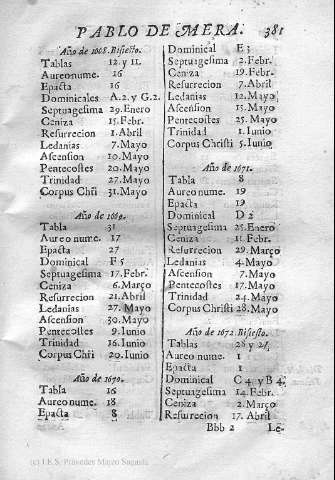 PABLO DE MERA. 381
Año de 1668. Bisiesto.
Tablas 12. y 11.
Aureo nume. 16
Epacta 16
Dominicales A. 2. y G. 2.
Septuagesima 29. Enero
Ceniza 15. Febr.
Resurreccion 1. Abril
Ledanias 7. Mayo
Ascension 10. Mayo
Pentecostes 20. Mayo
Trinidad 27. Mayo
Corpus Chři 31. Mayo
Año de 1669.
Tabla 31
Aureo nume. 17
Epacta 27
Dominical F 5
Septuagesima 17. Febr.
Ceniza 6. Março
Resurreccion 21. Abril
Ledanias 27. Mayo
Ascension 30. Mayo
Pentecostes 9. Iunio
Trinidad 16. Iunio
Corpus Chři 20. Iunio
Año de 1670.
Tabla 16
Aureo nume. 18
Epacta 8
Dominical E 3
Septuagesima 2. Febr.
Ceniza 19. Febr.
Resurrecion 7. Abril
Ledanias 12. Mayo
Ascension 15. Mayo
Pentecostes 25. Mayo
Trinidad 1. Iunio
Corpus Christi 5. Iunio
Año de 1671.
Tabla 8
Aureo nume. 19
Epacta 19
Dominical D 2
Septuagesima 25. Enero
Ceniza 11. Febr.
Resurrecion 29. Março
Ledanias 4. Mayo
Ascension 7. Mayo
Pentecostes 17. Mayo
Trinidad 24. Mayo
Corpus Christi 28. Mayo
Año de 1672. Bisiesto.
Tablas 28 y 27.
Aureo nume. 1
Epacta 1
Dominical C 4. y B 4.
Septuagesima 14. Febr.
Ceniza 2. Março
Resurrecion 17. Abril
Bbb 2 Le-
(c) I.E.S. Práxedes Mateo Sagasta